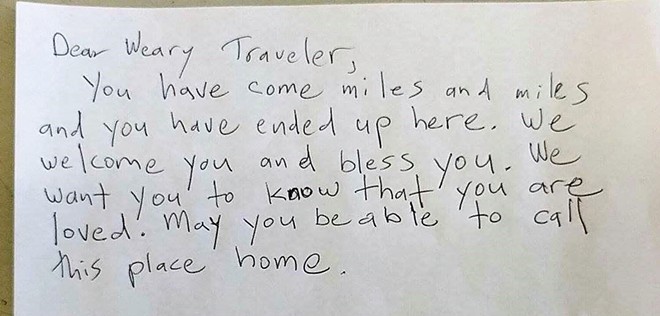 Dear Weary Traveler,
You have come miles and miles
and you have ended up here. We
welcome you and bless you. We
want you to know that you are
loved. May you be able to call
this place home.